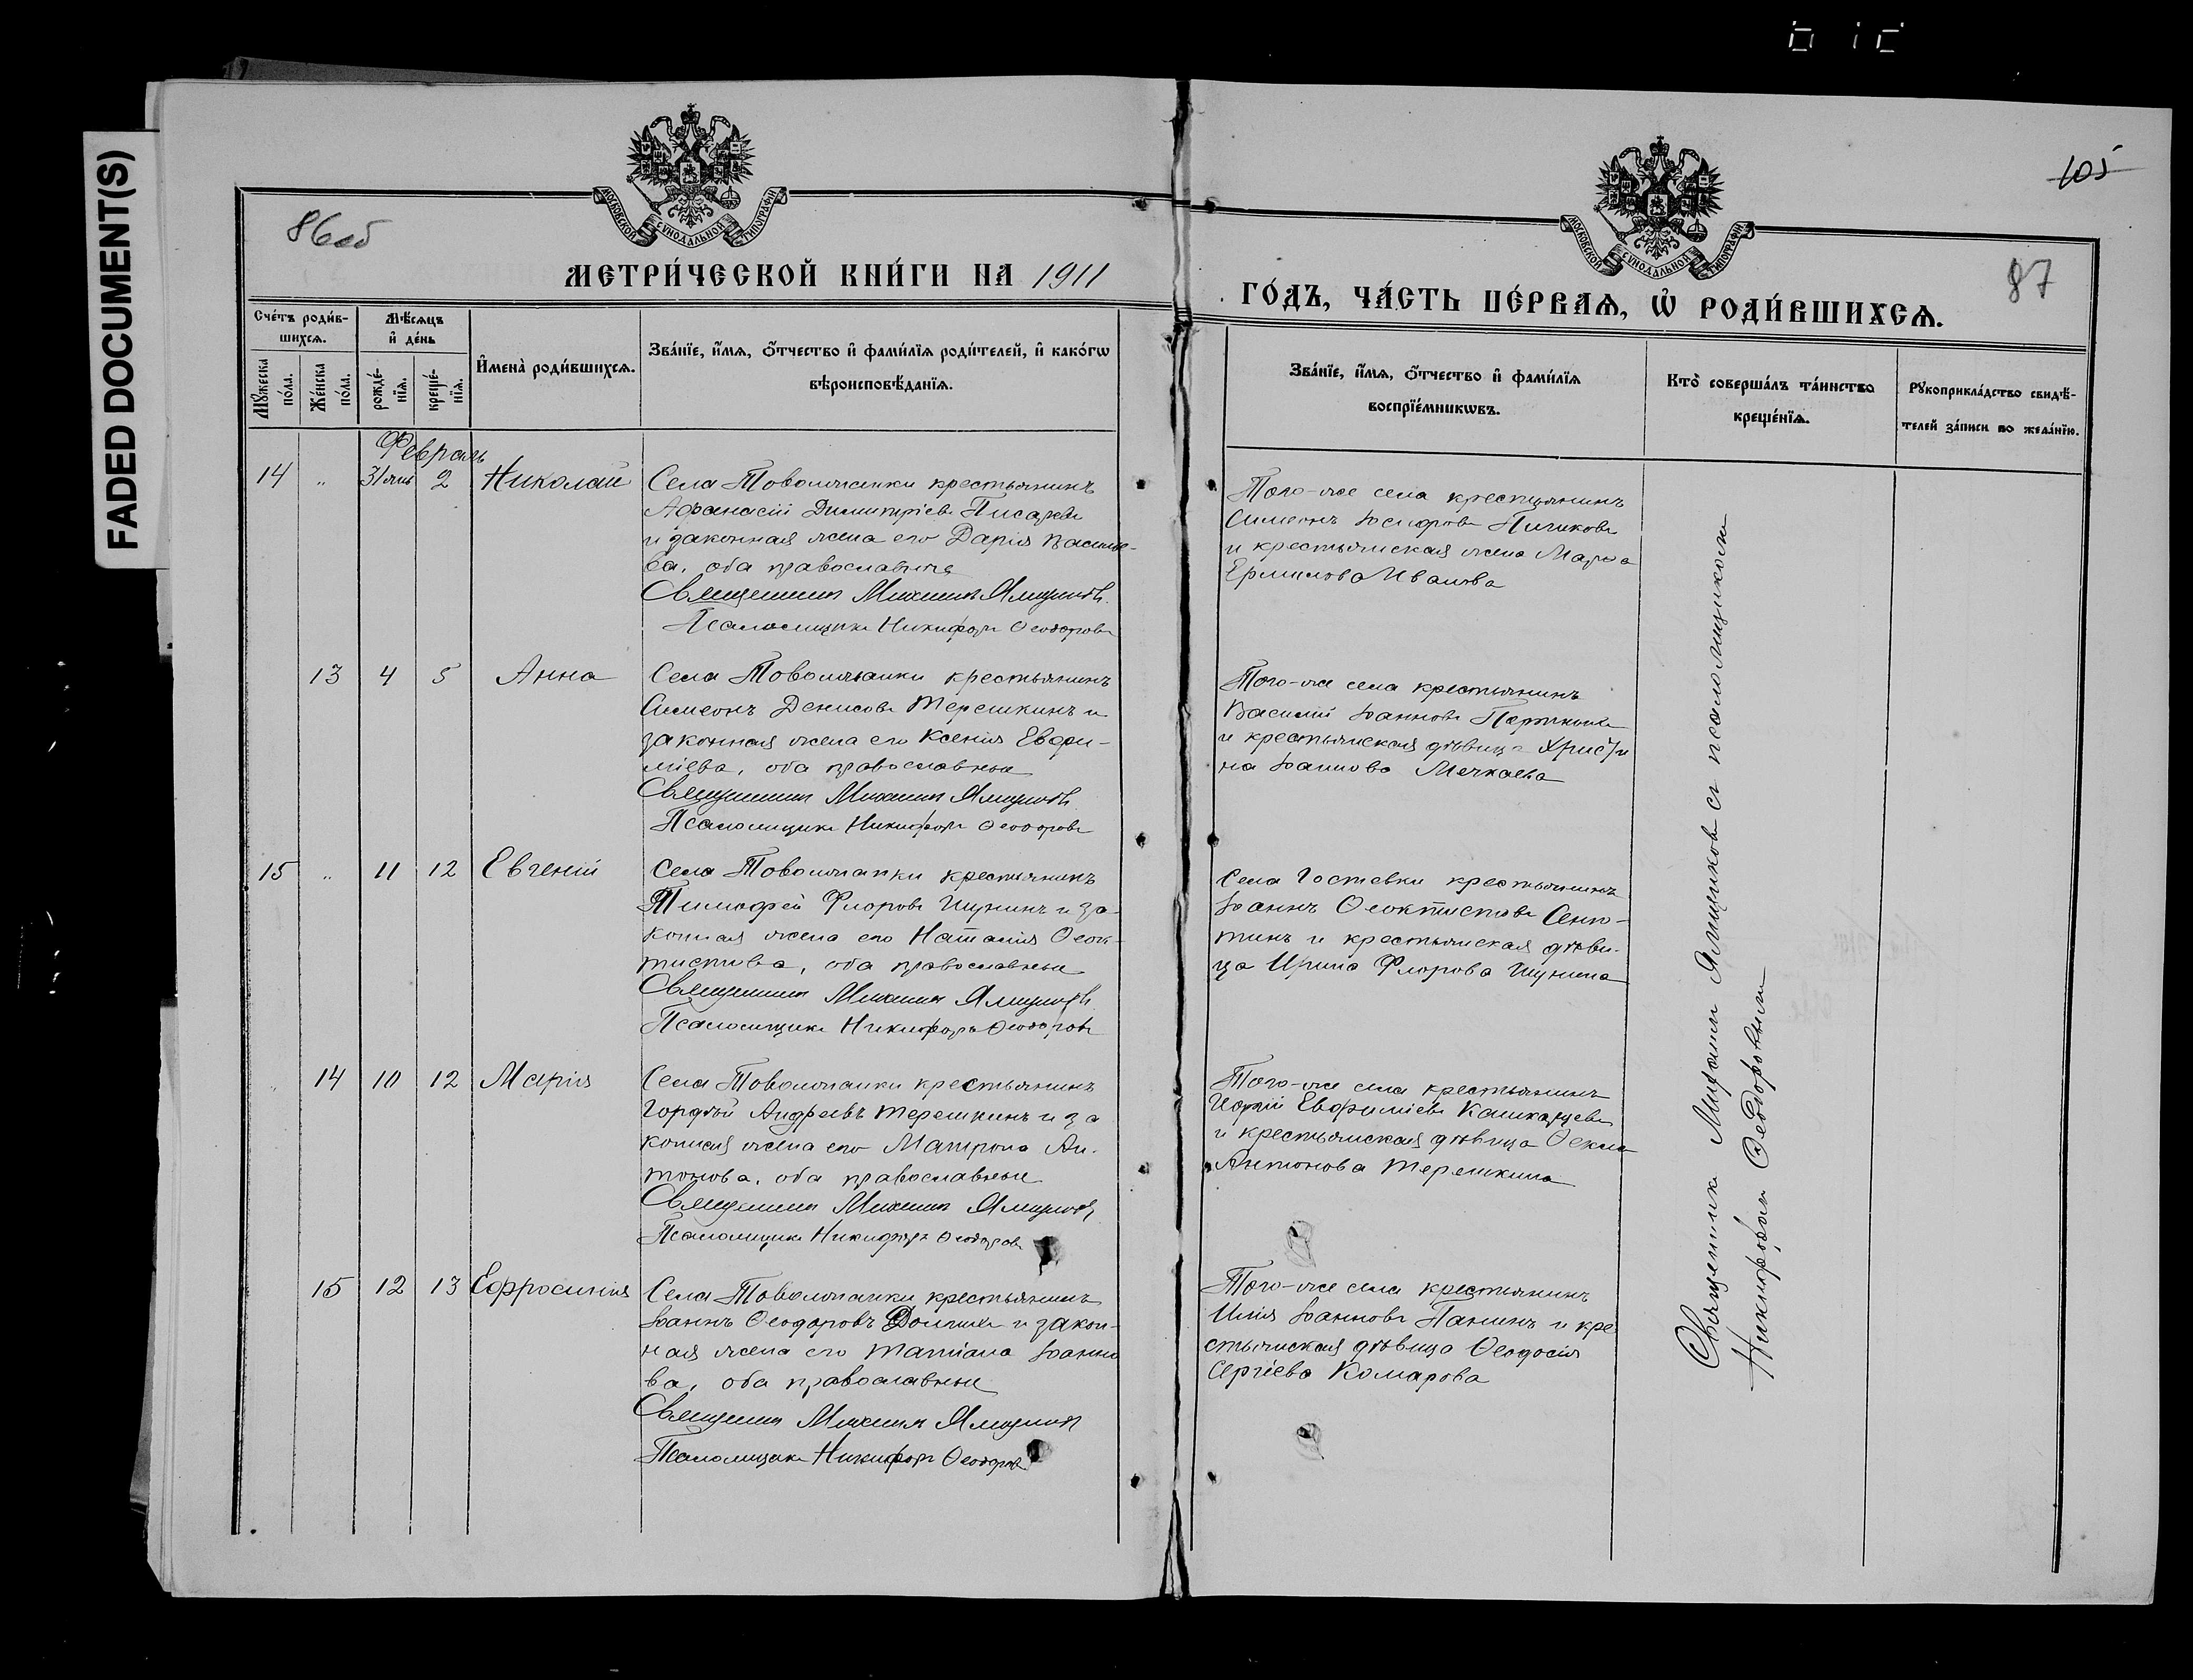 FADED DOCUMENT(S)
105
86об
87
МОСКОВСКОЙ СУНОДАЛЬНОЙ ТИПОГРАФІИ
МОСКОВСКОЙ СУНОДАЛЬНОЙ ТИПОГРАФІИ
МЕТРИ́ЧЕСКОЙ КНИ́ГИ НА 1911
ГО́ДЪ, ЧА́СТЬ ПЕ́РВАѦ, Ѡ҆ РОДИ́ВШИХСѦ.
Сче́тъ роди́в-
шихсѧ.
Мꙋ́жеска
по́ла.
Же́нска
по́ла.
Мѣ́сѧцъ
и҆ де́нь
рожде́-
нїѧ.
креще́-
нїѧ.
И҆мена̀ роди́вшихсѧ.
Зва́нїе, и҆́мѧ, ѻ҆́тчество и҆ фами́лїѧ роди́телей, и҆ како́гѡ
вѣроисповѣ́данїѧ.
Зва́нїе, и҆́мѧ, ѻ҆́тчество и҆ фами́лїѧ
воспрїе́мникѡвъ.
Кто̀ соверша́лъ та́инство
креще́нїѧ.
Рꙋкоприкла́дство свидѣ́-
телей за́писи по жела́нїю.
Февраль
14 " 31 янв 2 Николай
Села Товолжанки крестьянинъ
Афанасій Димитріевъ Писаревъ
и законная жена его Дарія Василье-
ва, оба православные
Священникъ Михаилъ Ямщиковъ
Псаломщикъ Никифоръ Ѳеодоровъ
Того-же села крестьянинъ
Симеонъ Іосифовъ
и крестьянская жена Марѳа
Ермилова Иванова
13 4 5 Анна
Села Товолжанки крестьянинъ
Симеонъ Денисовъ Терешкинъ и
законная жена его Ксенія Евфи-
міева, оба православные
Священникъ Михаилъ Ямщиковъ
Псаломщикъ Никифоръ Ѳеодоровъ
Того-же села крестьянинъ
Василій Іоанновъ
и крестьянская дѣвица Христи
на Іоаннова Мечкаева
15 " 11 12 Евгеній
Села Товолжанки крестьянинъ
Тимофей Флоровъ Шунинъ и за-
конная жена его Наталія Ѳеок-
тистова, оба православные
Священникъ Михаилъ Ямщиковъ
Псаломщикъ Никифоръ Ѳеодоровъ
Села Гостевки крестьянинъ
Іоаннъ Ѳеоктистовъ Сеню-
тинъ и крестьянская дѣви-
ца Ирина Флорова Шунина
14 10 12 Марія
Села Товолжанки крестьянинъ
Гордѣй Андреевъ Терешкинъ и за
конная жена его Матрона Ан-
тонова, оба православные
Священникъ Михаилъ Ямщиковъ
Псаломщикъ Никифоръ Ѳеодоровъ
Того-же села крестьянинъ
Евфиміевъ
и крестьянская дѣвица Ѳекла
Антонова Терешкина
15 12 13 Ефросинія
Села Товолжанки крестьянинъ
Іоаннъ Ѳеодоровъ и закон-
ная жена его Татіана Іоанно
ва, оба православные
Священникъ Михаилъ Ямщиковъ
Псаломщикъ Никифоръ Ѳеодоровъ
Того-же села крестьянинъ
Илія Іоанновъ Панинъ и кре
стьянская дѣвица Ѳеодосія
Сергіева Комарова
Священникъ Михаилъ Ямщиковъ съ псаломщикомъ
Никифоромъ Ѳеодоровымъ